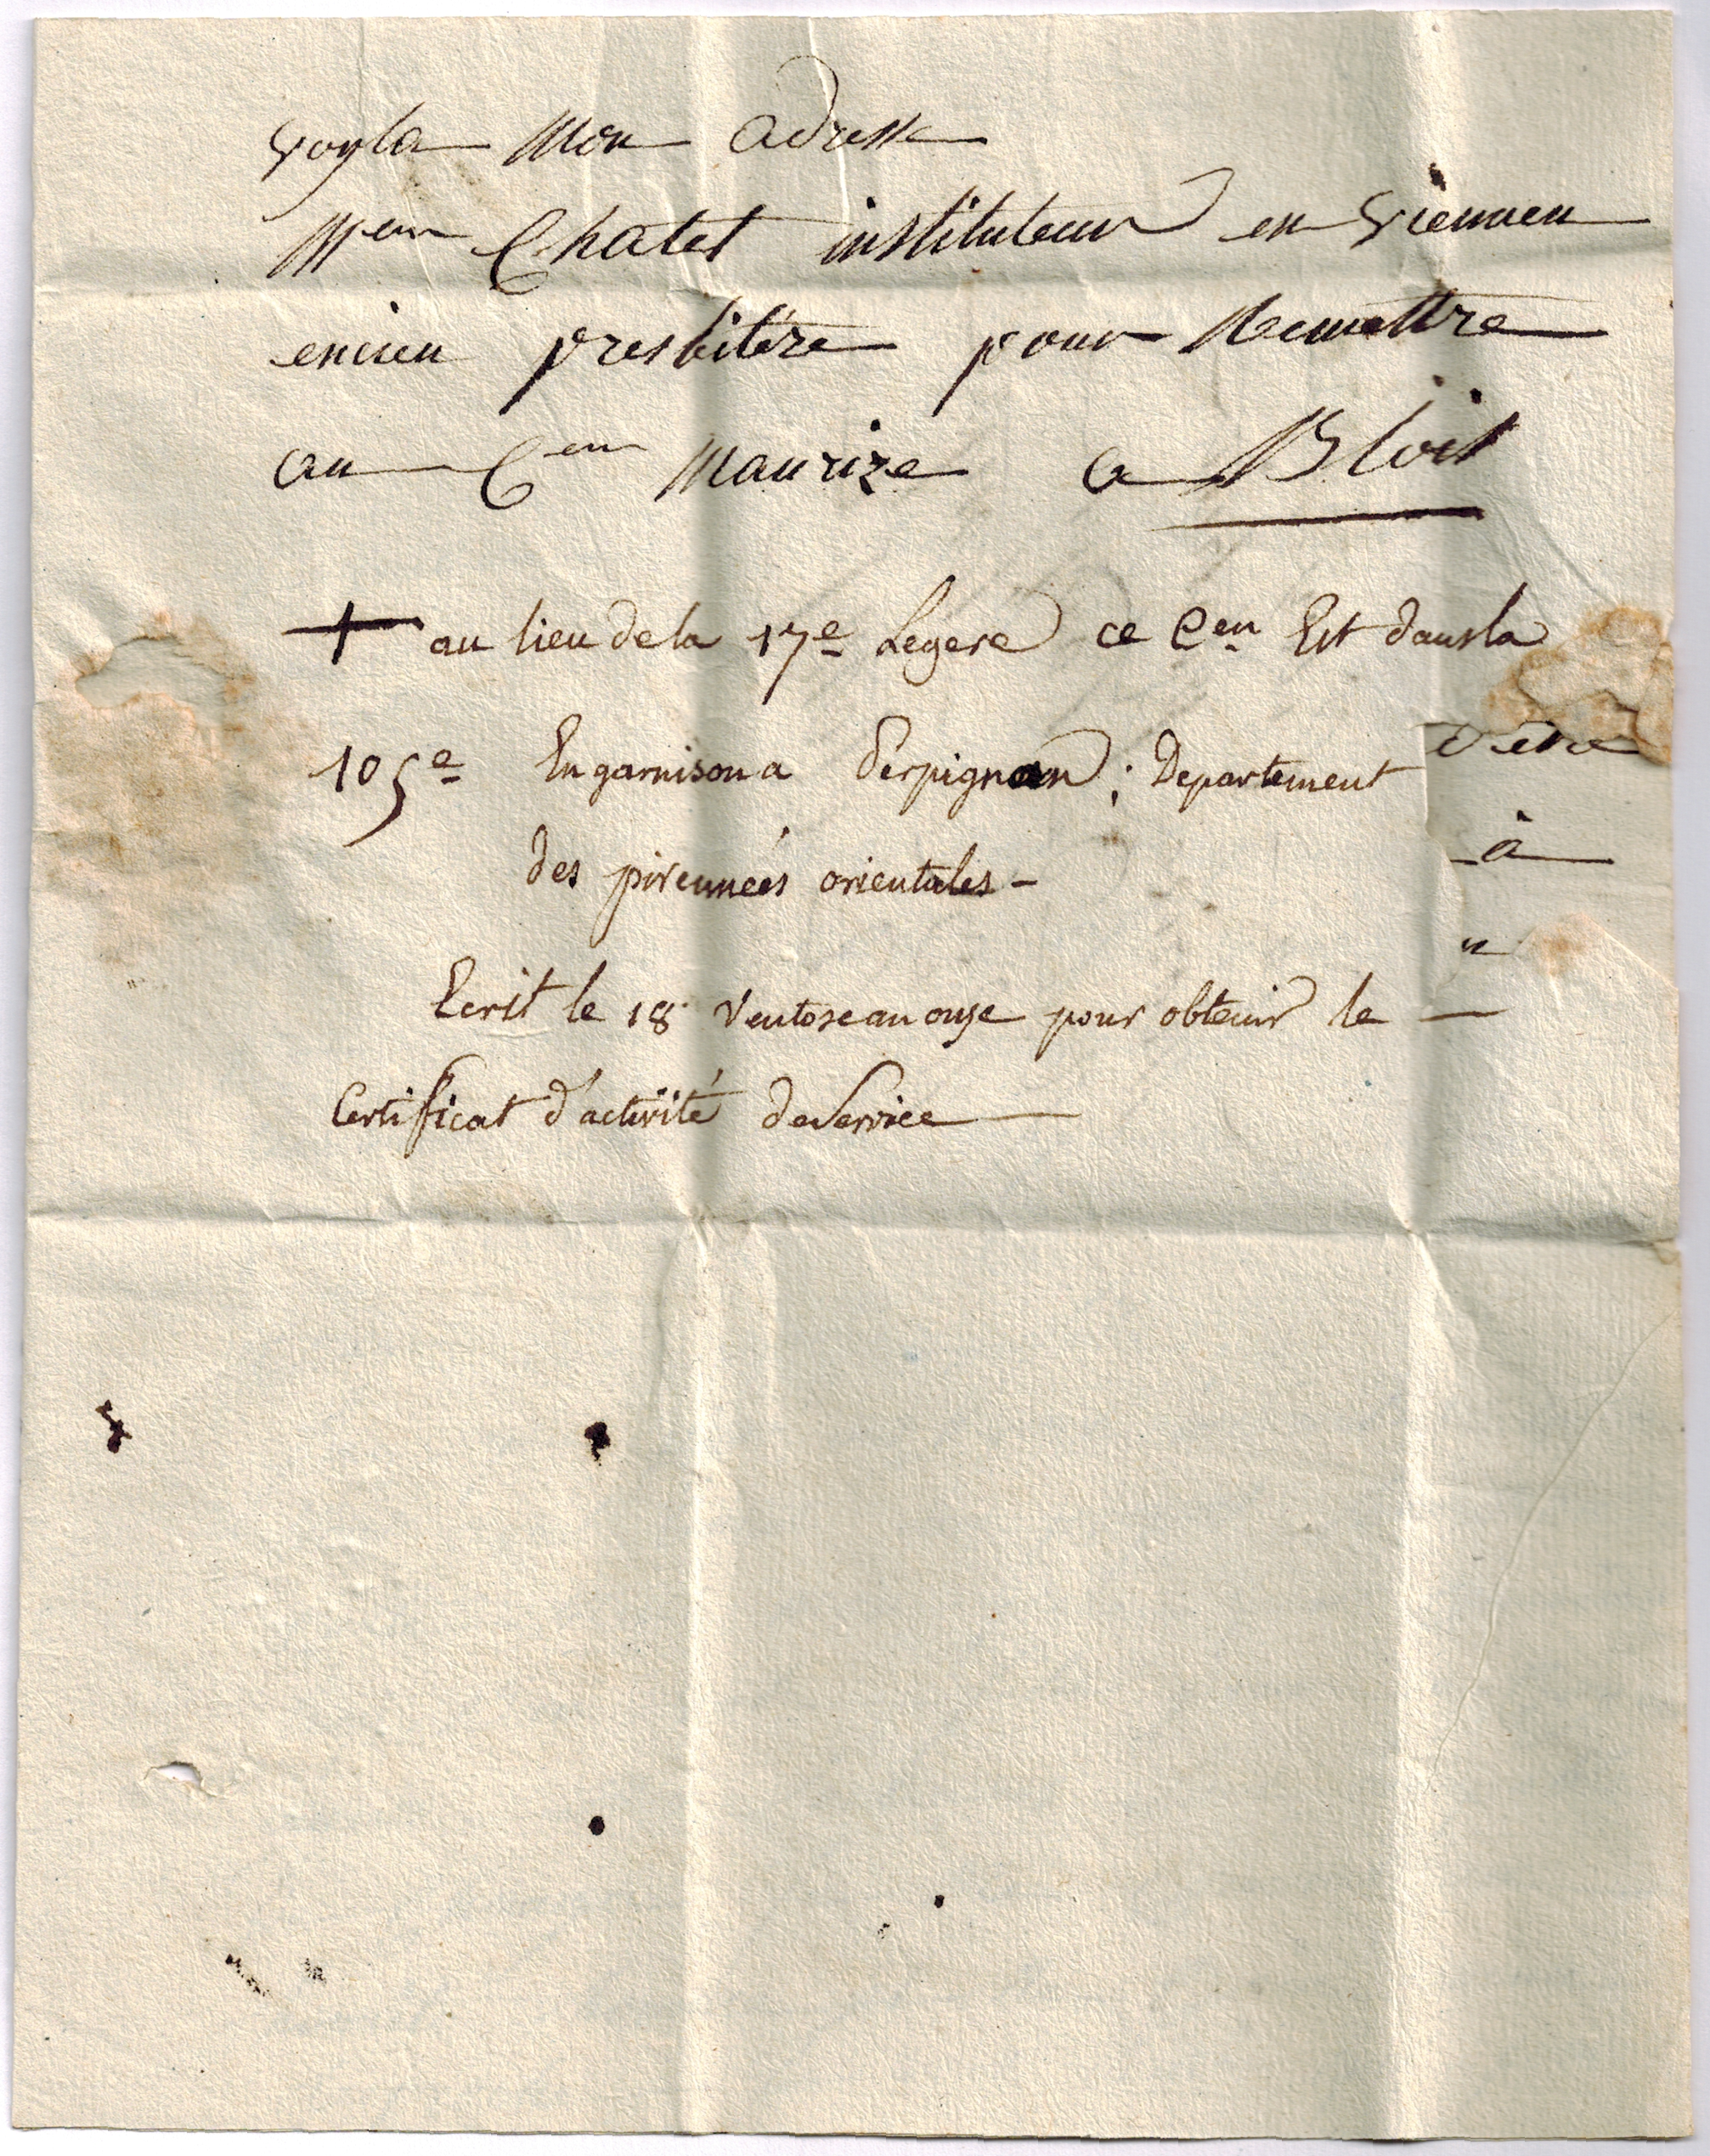 voyla mon adresse
Meur Chatet instituteur en viennen
encien presbitére pour Remettre
au Cem Maurize a Bloit
+ au lieu dela 17e Legere ce Cen Est dansla
105e En garnison a Perpignan; Departement
des pirennées orientales -
à
Ecrit le 18 Ventose an onze pour obtenir le —
Certificat d'activité de Service —